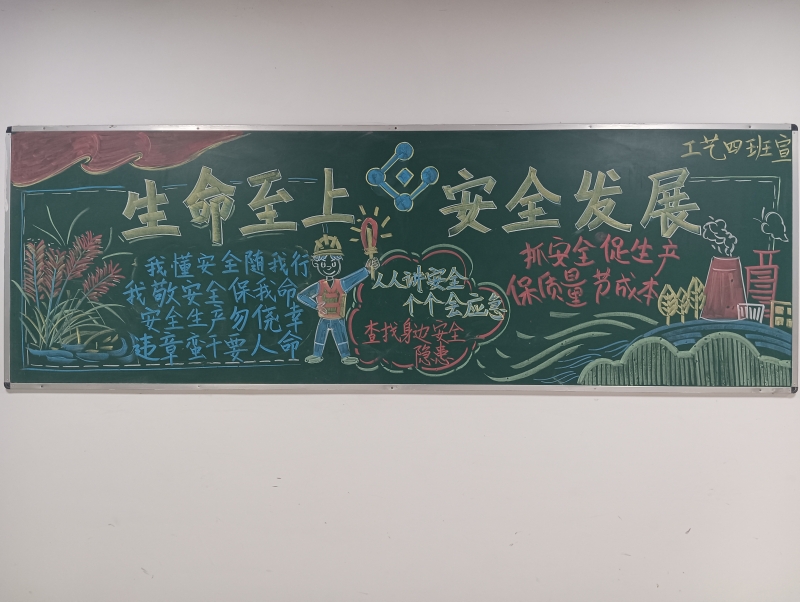 工艺四班宣
生命至上 安全发展
我懂安全随我行
我敬安全保我命
安全生产勿侥幸
违章蛮干要人命
人人讲安全
个个会应急
查找身边安全
隐患
抓安全促生产
保质量节成本